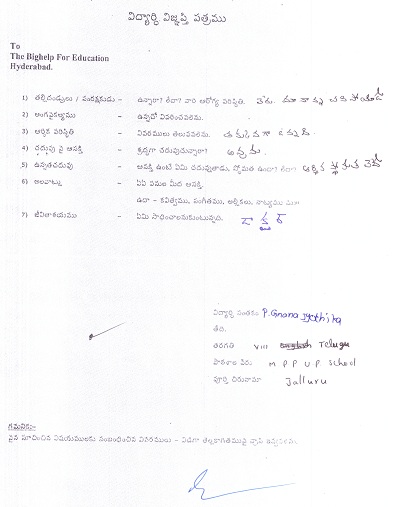 విద్యార్ధి విజ్ఞప్తి పత్రము
To
The Bighelp For Education
Hyderabad.
1) తల్లిదండ్రులు / సంరక్షకుడు - ఉన్నారా? లేదా? వారి ఆరోగ్య పరిస్థితి. లేదు మా నాన్న చనిపోయాడు
2) అంగవైకల్యము - ఉన్నచో వివరించవలెను.
3) ఆర్ధిక పరిస్థితి - వివరములు తెలుపవలెను.
4) చదువు పై ఆసక్తి - శ్రద్ధగా చదువుచున్నారా? అవును.
5) ఉన్నతచదువు - ఆసక్తి ఉంటే ఏమి చదువుతాడు, స్తోమత ఉందా? లేదా? ఆర్ధిక స్తోమత లేదు
6) అలవాట్లు - ఏఏ పనుల మీద ఆసక్తి.
ఉదా - కవిత్వము, సంగీతము, అల్లికలు, నాట్యము
7) జీవితాశయము - ఏమి సాధించాలనుకుంటున్నది. డాక్టర్
విద్యార్ధి సంతకం P. Gnana Jyothika
తేది.
తరగతి VIII Telugu
పాఠశాల పేరు M P P U P School
పూర్తి చిరునామా Jalluru
గమనిక:-
పైన సూచించిన విషయములకు సంబంధించిన వివరములు - విడిగా తెల్లకాగితముపై వ్రాసి